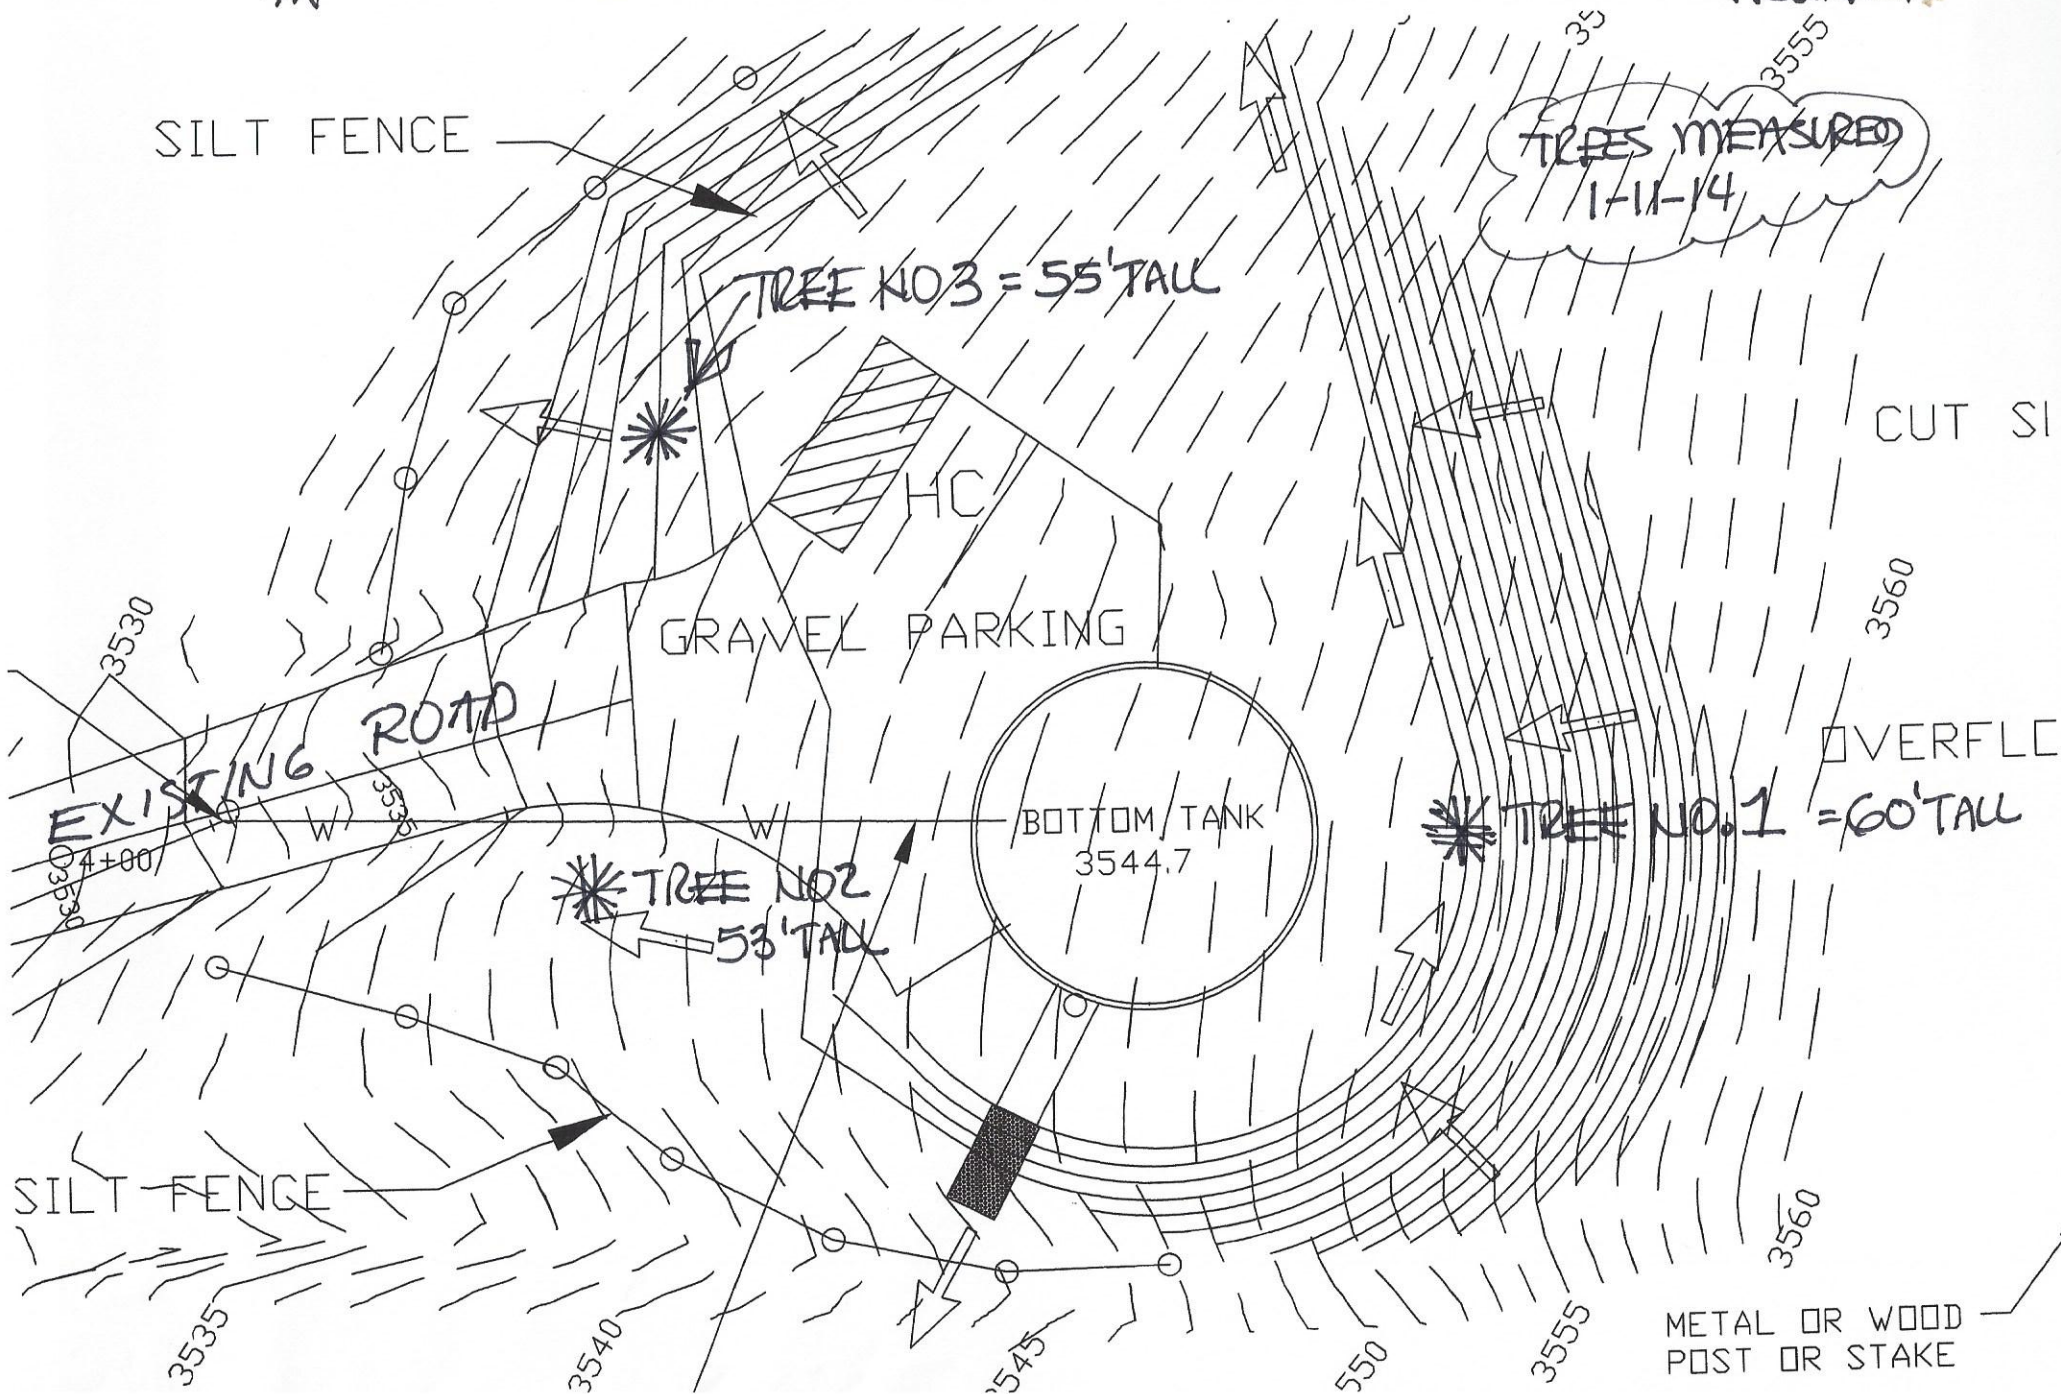 3555
TREES MEASURED
1-11-14
SILT FENCE
TREE NO3 = 55'TALL
CUT SI
HC
3560
3530
GRAVEL PARKING
EXISTING ROAD
OVERFLO
3535
W
W
BOTTOM TANK
3544.7
TREE NO.1 = 60'TALL
4+00
3530
TREE NO2
53'TALL
SILT FENCE
3560
3535
3540
3545
550
3555
METAL OR WOOD
POST OR STAKE